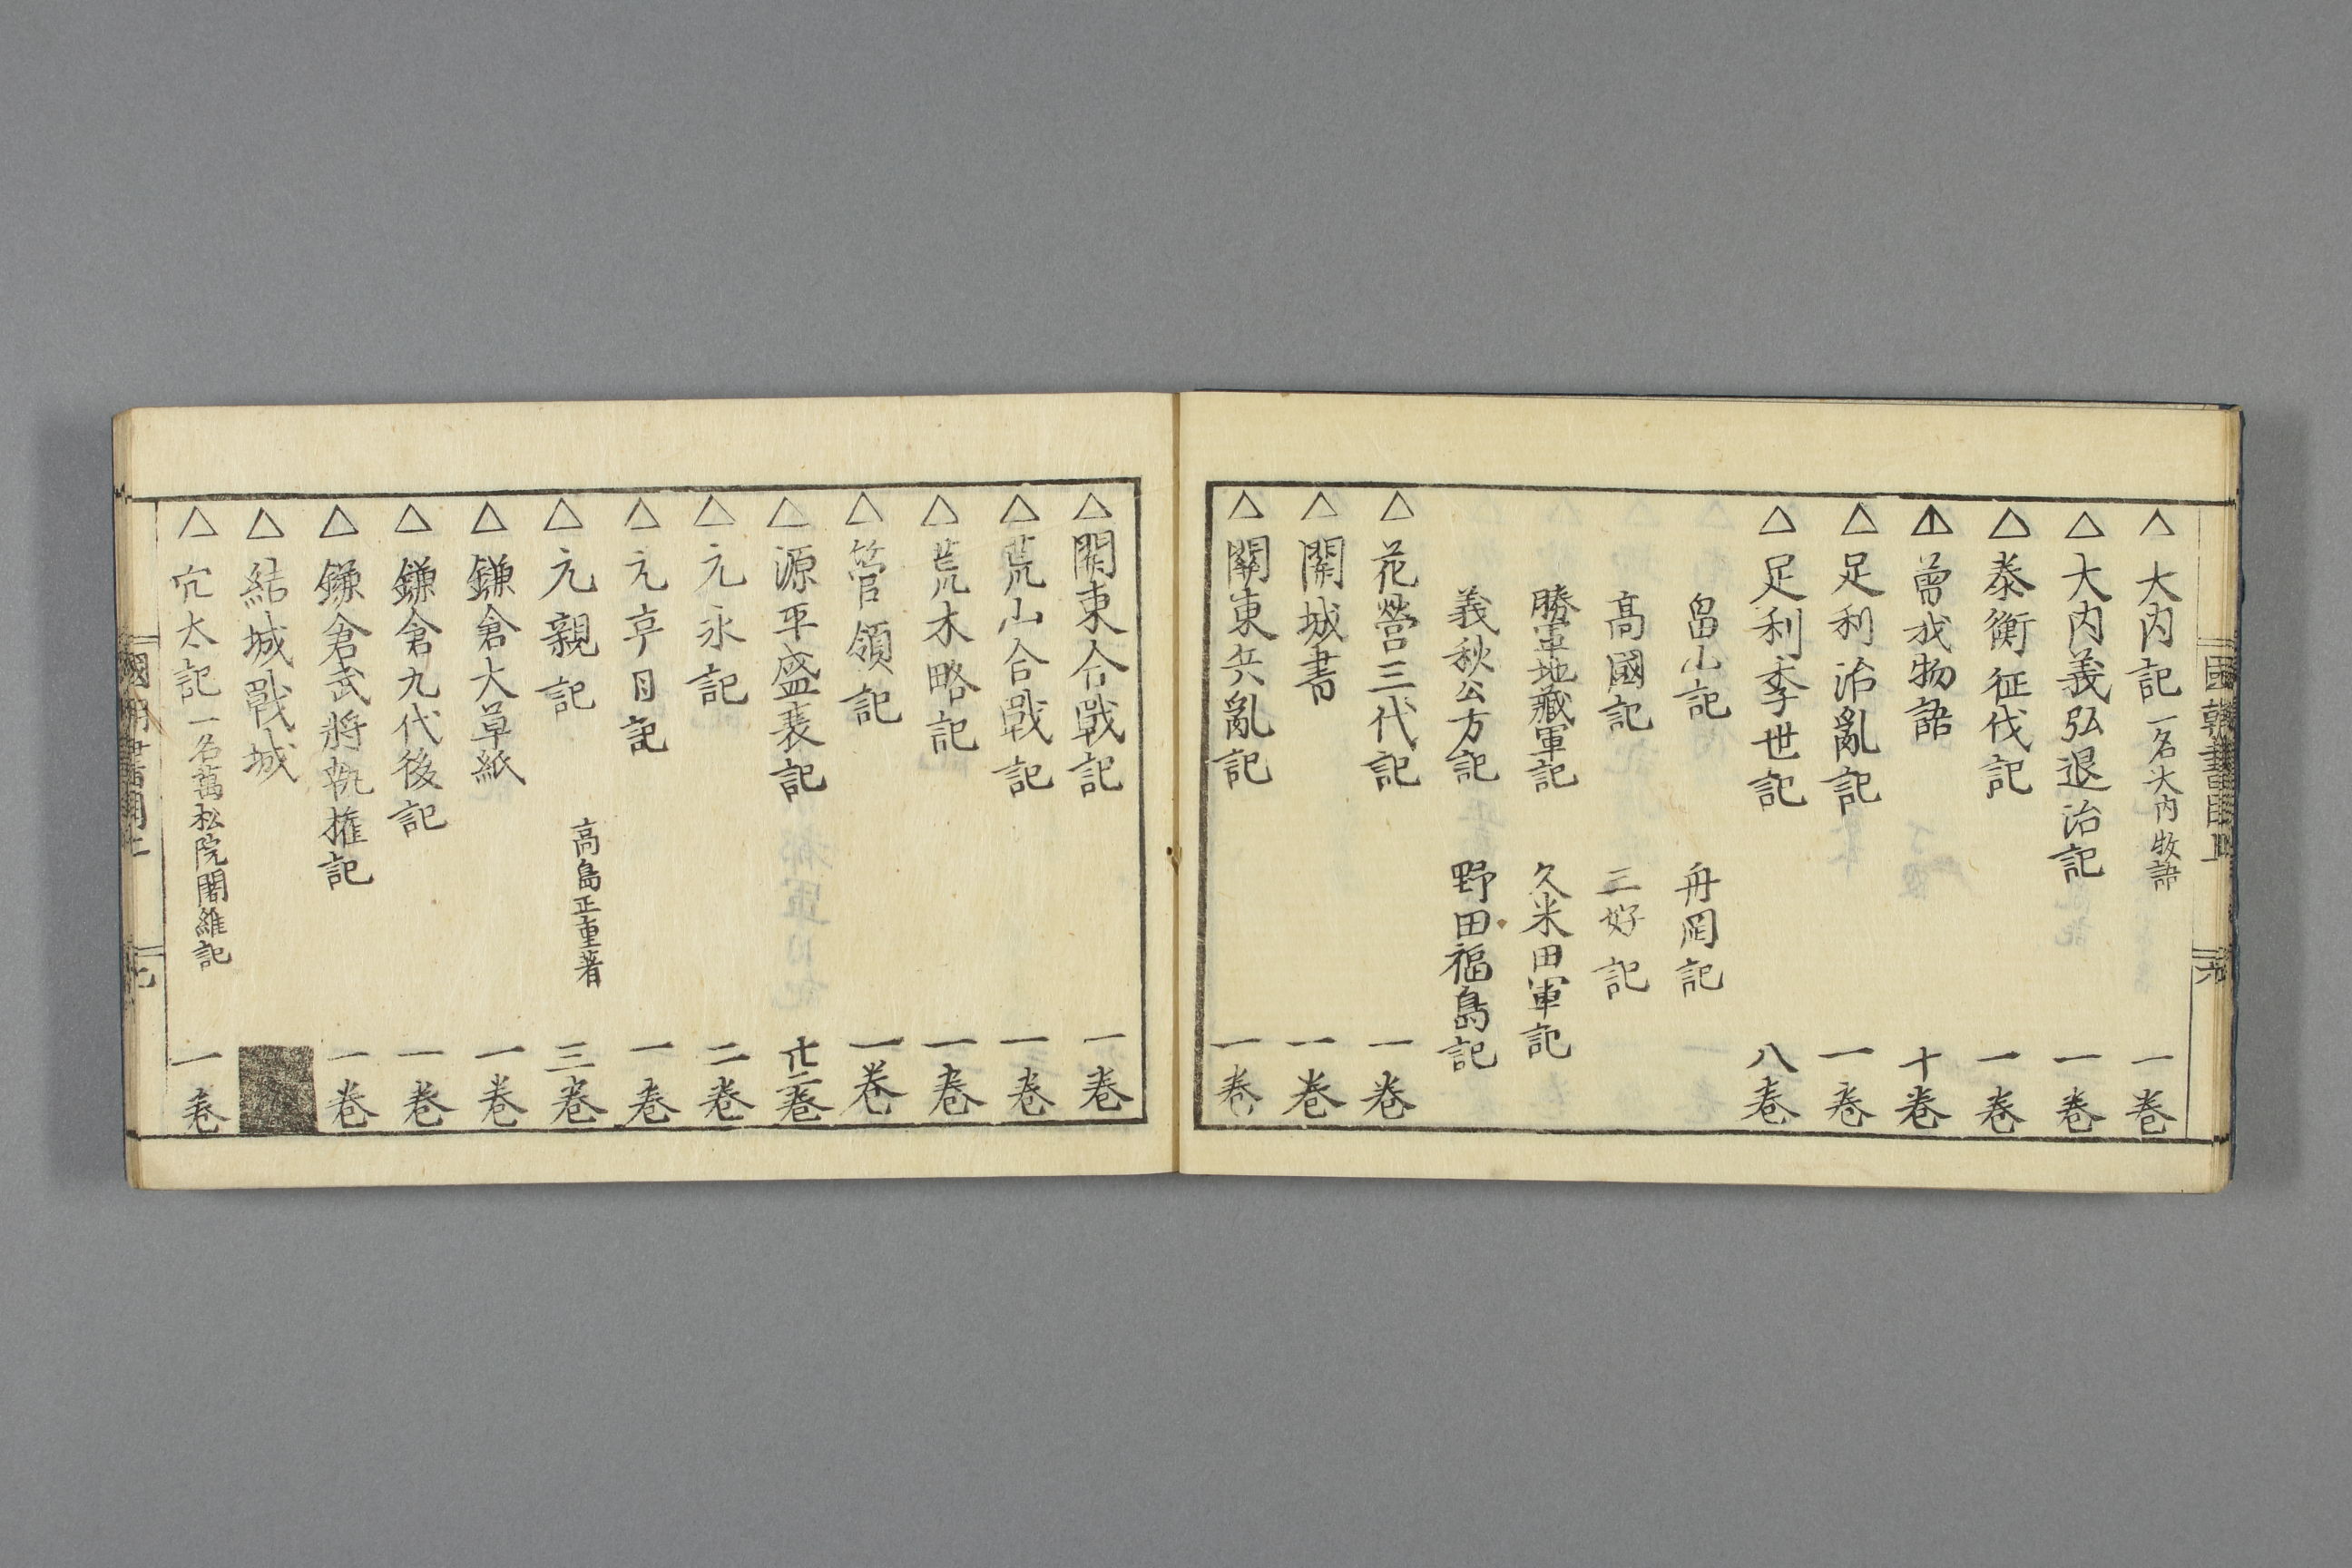 國朝書目上
六
△大内記 一名大内牧語 一卷
△大内義弘退治記 一卷
△泰衡征伐記 一卷
△曽我物語 十卷
△足利治亂記 一卷
△足利季世記 八卷
畠山記 舟岡記
高國記 三好記
勝軍地藏軍記 久米田軍記
義秋公方記 野田福島記
△花營三代記 一卷
△關城書 一卷
△關東兵亂記 一卷
△關東合戰記 一卷
△荒山合戰記 一卷
△荒木略記 一卷
△管領記 一卷
△源平盛衰記 廿二卷
△元永記 二卷
△元亨日記 一卷
△元親記 高島正重著 三卷
△鎌倉大草紙 一卷
△鎌倉九代後記 一卷
△鎌倉武將執權記 一卷
△結城戰城
△穴太記 一名萬松院闍維記 一卷